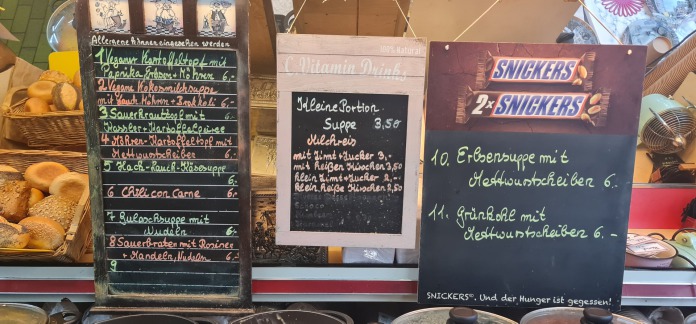 Allergene können eingesehen werden
1 Veganer Kartoffeltopf mit
Paprika Erbsen + Möhren 6.-
2 Vegane Kokosmilchsuppe
mit Lauch Möhren + Brokkoli 6.-
3 Sauerkrauttopf mit
Kassler + Kartoffelpüree 6.-
4 Möhren-Kartoffeltopf mit
Mettwurstscheiben 6.-
5 Hack-Lauch-Käsesuppe
6.-
6 Chili con Carne 6.-
7 Gulaschsuppe mit
Nudeln 6.-
8 Sauerbraten mit Rosinen
+ Mandeln, Nudeln 6.-
9
100% Natural
C Vitamin Drinks
Kleine Portion
Suppe 3,50
Milchreis
mit Zimt + Zucker 3,-
mit heißen Kirschen 3,50
klein Zimt + Zucker 2,-
klein heiße Kirschen 2,50
SNICKERS
2x SNICKERS
10. Erbsensuppe mit
Mettwurstscheiben 6.-
11. Grünkohl mit
Mettwurstscheiben 6.-
SNICKERS®. Und der Hunger ist gegessen!